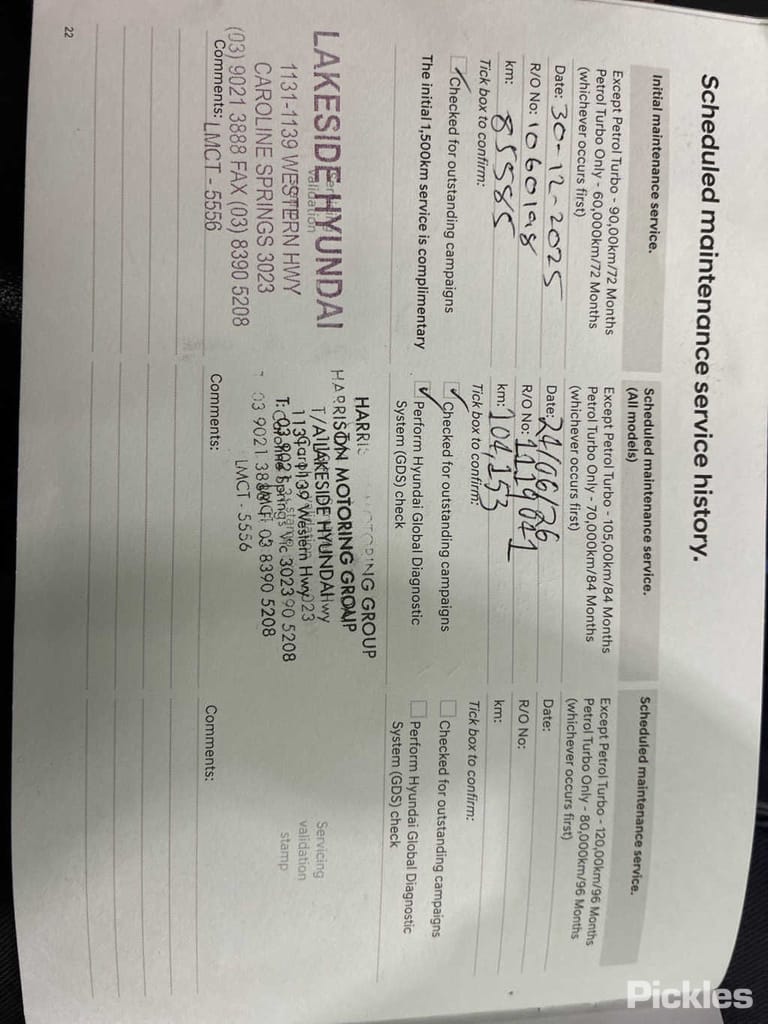 Scheduled maintenance service history.
Initial maintenance service.
Except Petrol Turbo - 90,00km/72 Months
Petrol Turbo Only - 60,000km/72 Months
(whichever occurs first)
Date: 30-12-2025
R/O No: 1060198
km: 85585
Tick box to confirm:
Checked for outstanding campaigns
The initial 1,500km service is complimentary
LAKESIDE HYUNDAI
validation
1131-1139 WESTERN HWY
CAROLINE SPRINGS 3023
(03) 9021 3888 FAX (03) 8390 5208
Comments: LMCT - 5556
Scheduled maintenance service.
(All models)
Except Petrol Turbo - 105,00km/84 Months
Petrol Turbo Only - 70,000km/84 Months
(whichever occurs first)
Date: 24/06/26
R/O No: 1119041
km: 104,153
Tick box to confirm:
Checked for outstanding campaigns
Perform Hyundai Global Diagnostic
System (GDS) check
HARRISON MOTORING GROUP
T/A LAKESIDE HYUNDAI
03 9021 3888 03 8390 5208
LMCT - 5556
Comments:
Scheduled maintenance service.
Except Petrol Turbo - 120,00km/96 Months
Petrol Turbo Only - 80,000km/96 Months
(whichever occurs first)
Date:
R/O No:
km:
Tick box to confirm:
Checked for outstanding campaigns
Perform Hyundai Global Diagnostic
System (GDS) check
Servicing
validation
stamp
Comments:
22
Pickles